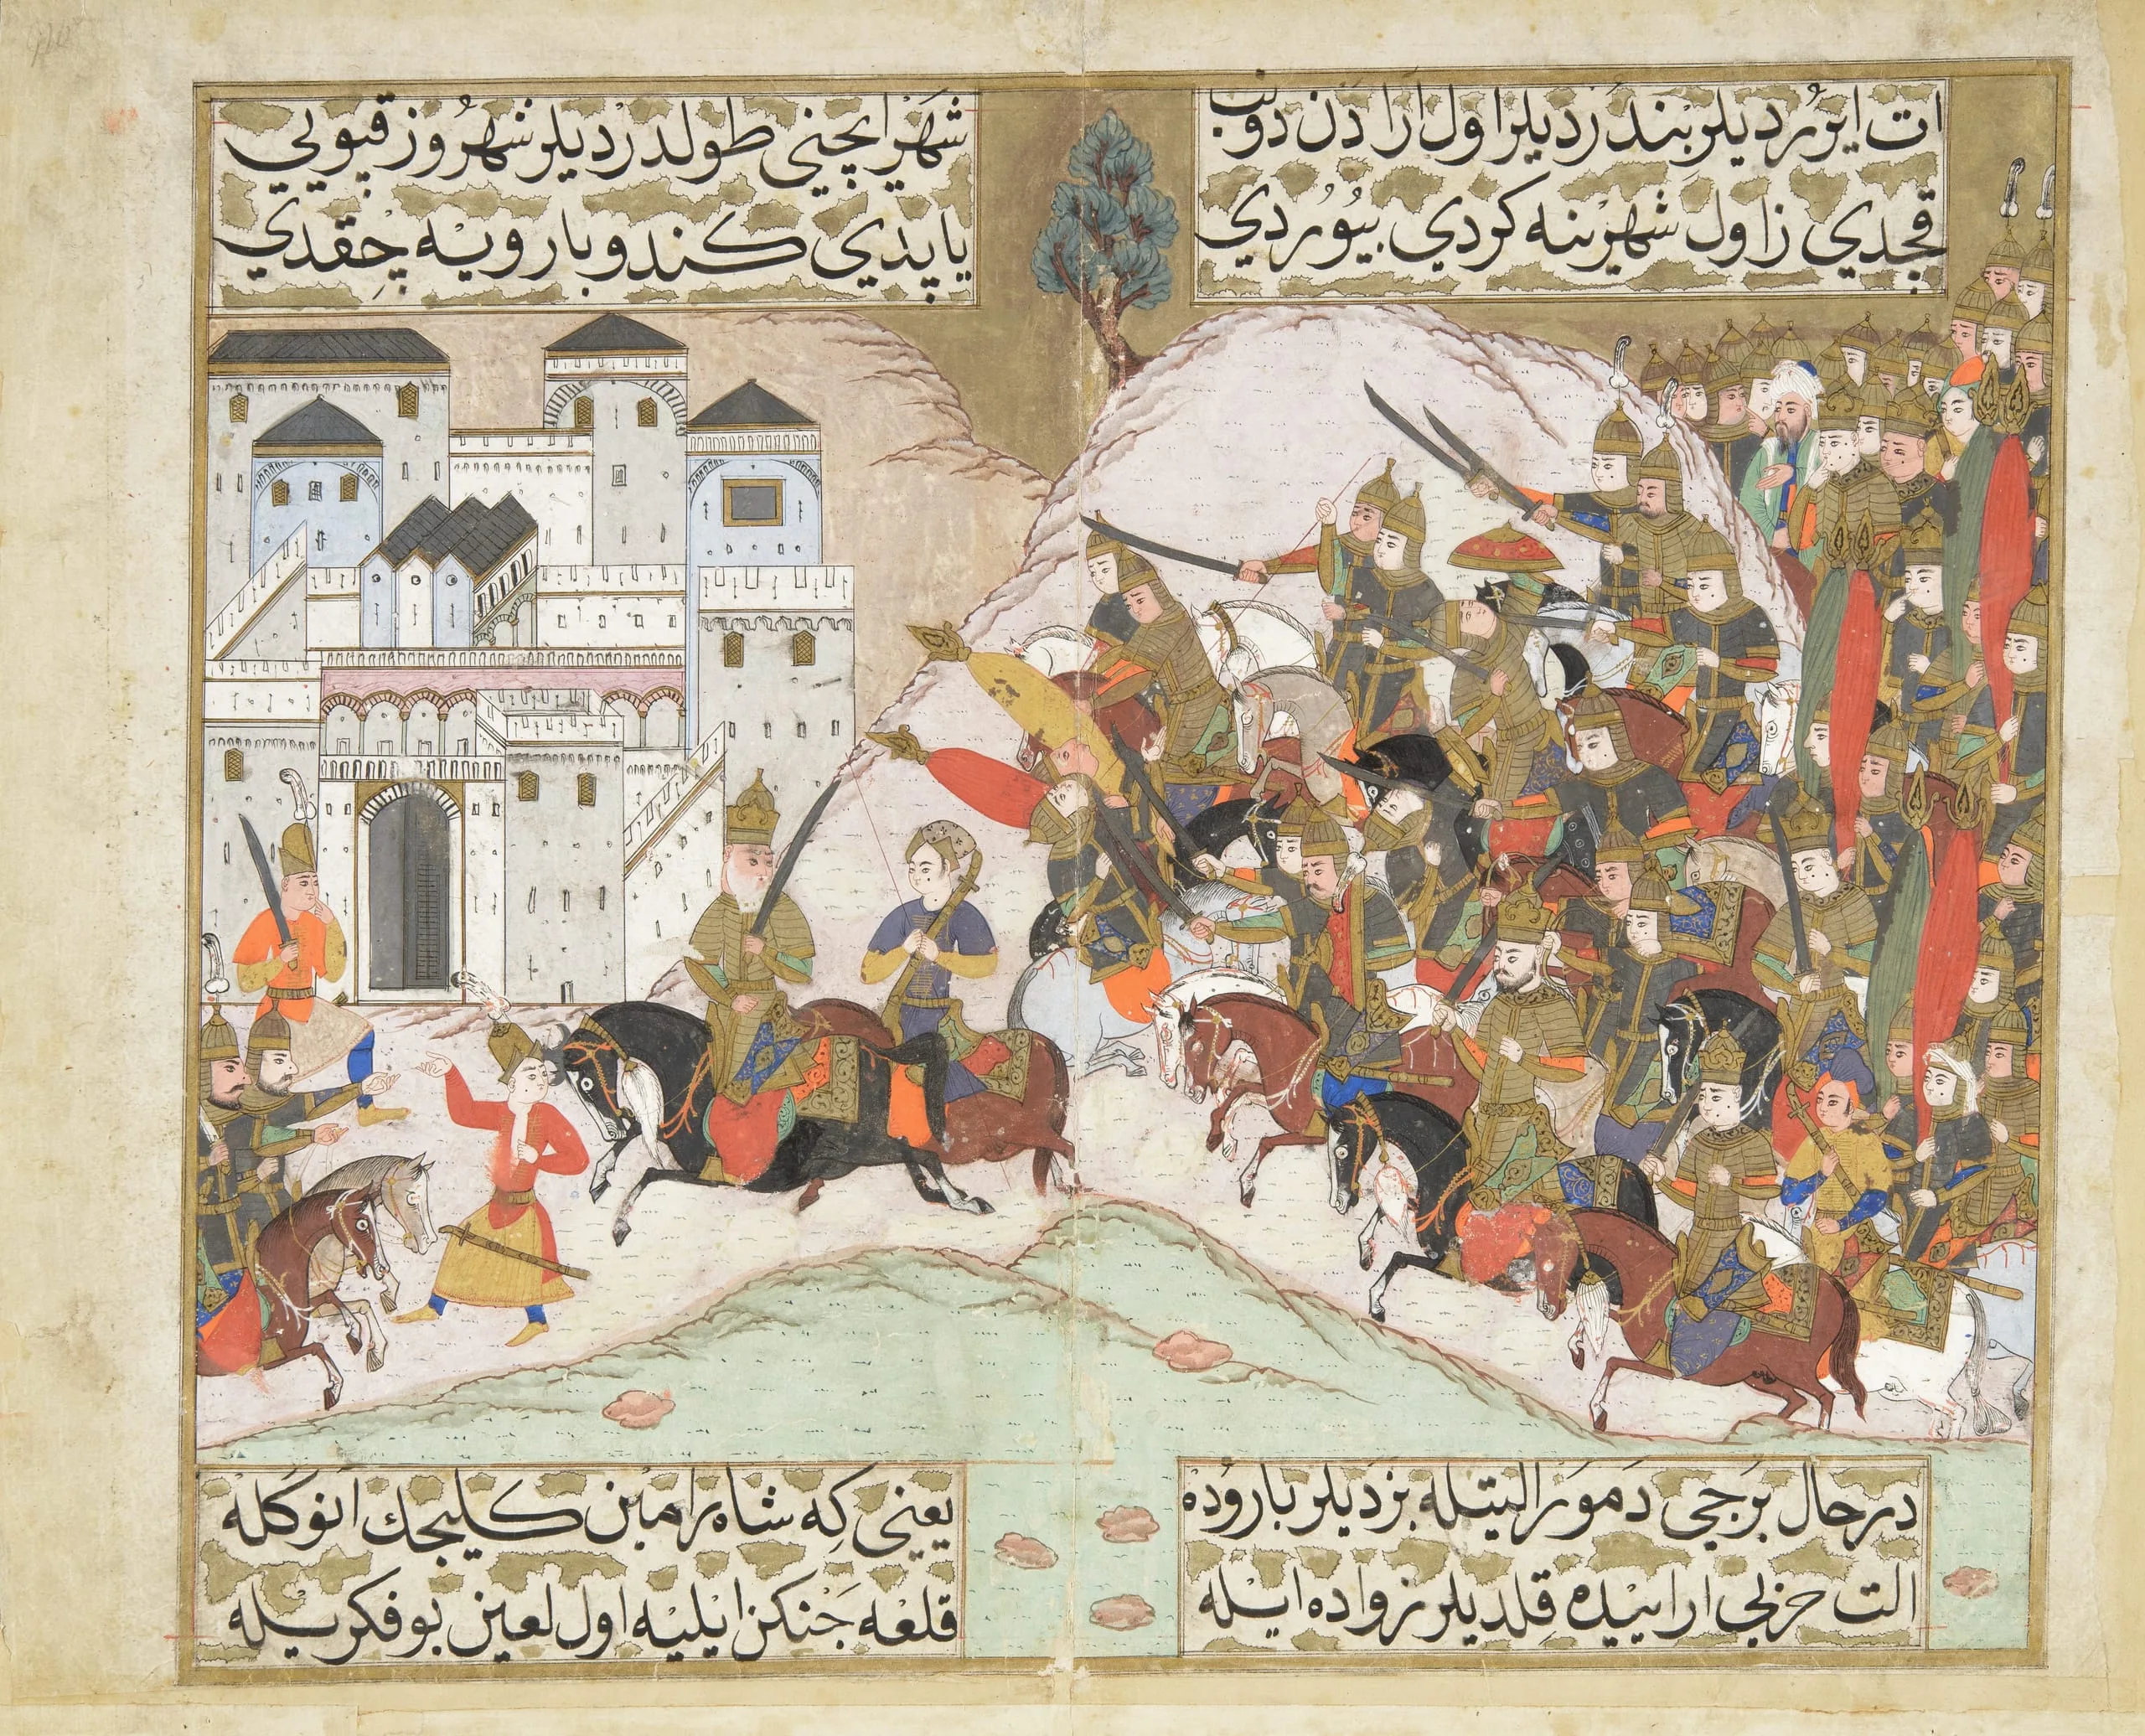 ات ایروردیلر بندردیلر اول ارادن دوب
قچدي زاول شهرینه کردي بیوردي
شهر ایچنی طولدردیلر شهروز قپوبي
یاپدي کندو بارویه چقدي
درحال برجی دمور البتله بزدیلر باروده
الت حزبی ارابیده قلدیلر زواده ایله
یعنی که شاه رامین کلیجك انوکله
قلعه جنکن ایلیه اول لعین بو فکریله